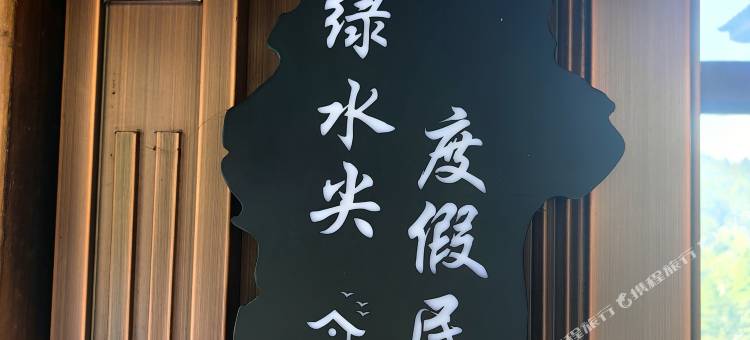 绿水尖
度假民
携程旅行
携程旅行